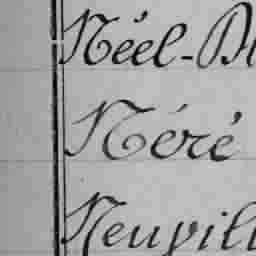 Néel-Bl
Néré
Neuvill